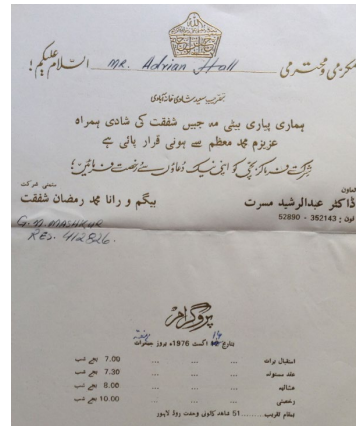 مکرمی و محترمی Mr. Adrian Hall السلام علیکم!
بتقریب سعید شادی خانہ آبادی
ہماری پیاری بیٹی مہ جبیں شفقت کی شادی ہمراہ
عزیزم محمد معظم سے ہونی قرار پائی ہے
شرکت فرما کر بچی کو اپنی نیک دعاؤں سے رخصت فرمائیں؛
متمنی شرکت
بیگم و رانا محمد رمضان شفقت
ڈاکٹر عبدالرشید مسرت
فون : 352143 - 52890
G. M. MASHKUR
RES. 412826.
پروگرام
بتاریخ اگست 1976ء بروز جمعرات
استقبال برات ... ... ... 7.00 بجے شب
عقد مسنونہ ... ... ... 7.30 بجے شب
عشائیہ ... ... ... 8.00 بجے شب
رخصتی ... ... ... 10.00 بجے شب
بمقام تقریب...... 51 شاہد کالونی وحدت روڈ لاہور